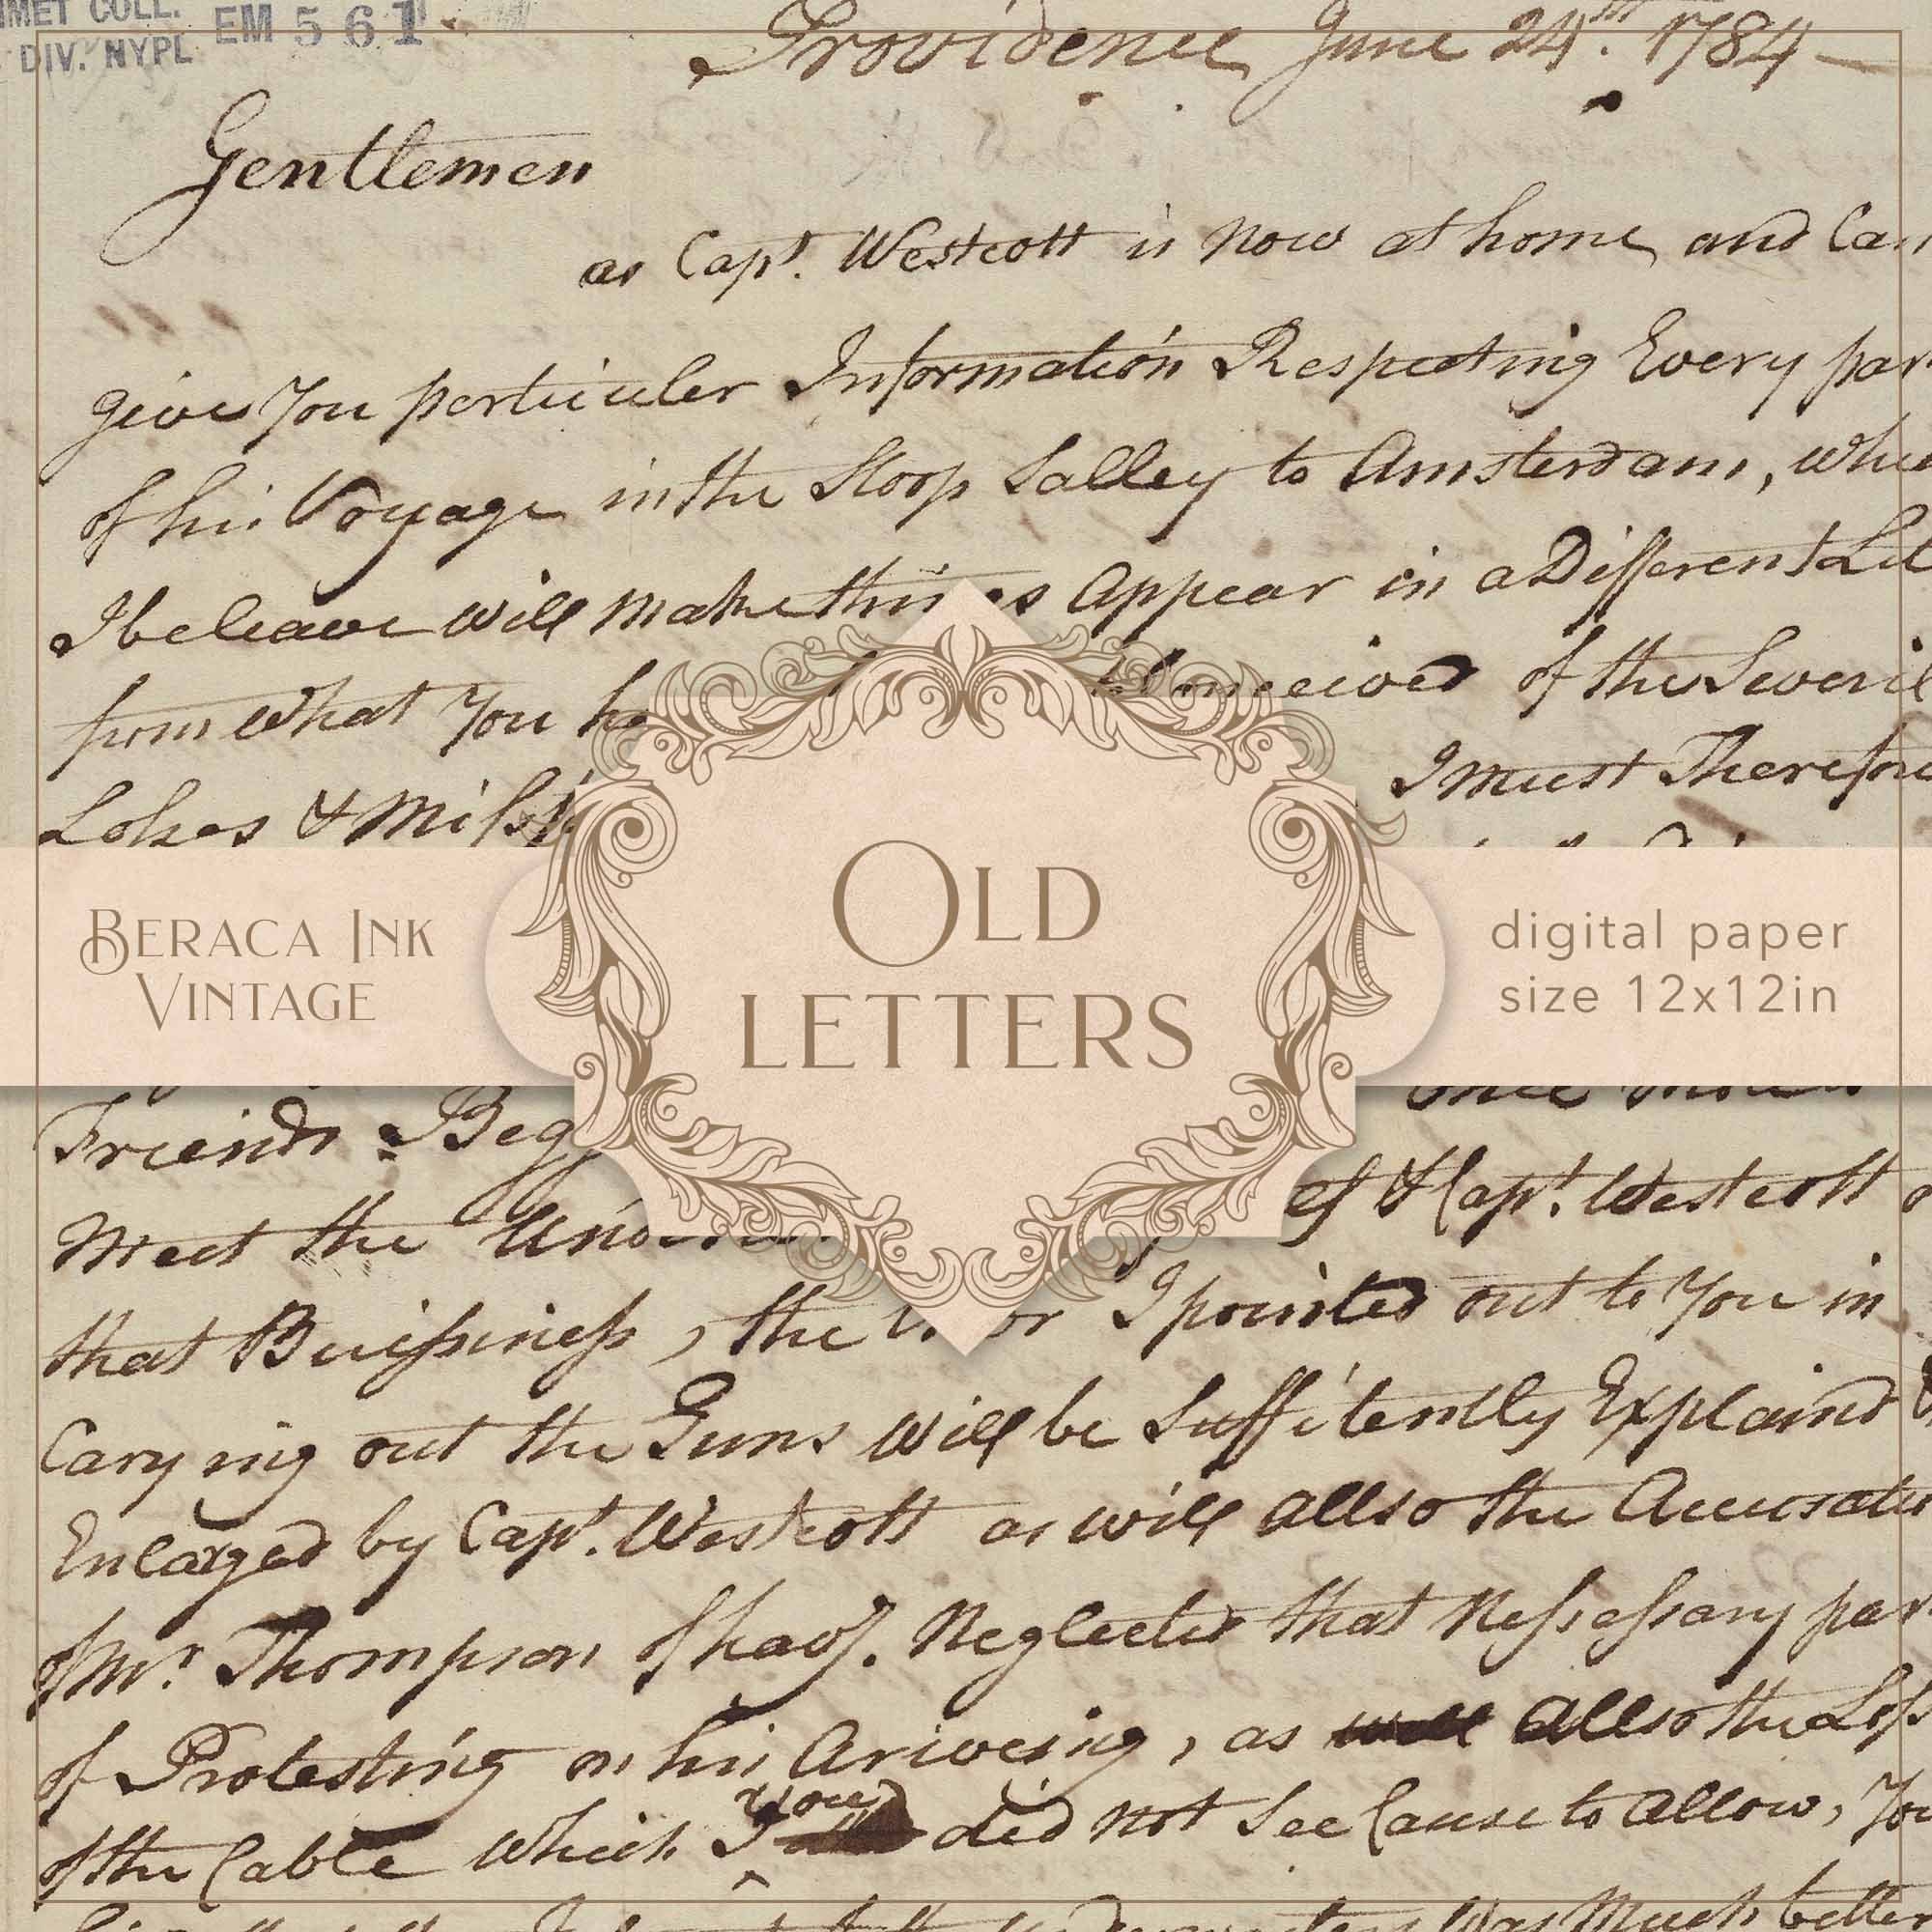 MMET COLL.
DIV. NYPL
EM 561
Providence June 24th. 1784
Gentlemen
as Capt. Westcott is now at home and Can
give You perticuler Information Respecting Every par
of his Voyage in the Sloop Salley to Amsterdam, whic
I beleave will make things Appear in a Different Lit
from what You ha Conceived of the Severil
Loses & I must Therefore
BERACA INK
VINTAGE
OLD
LETTERS
digital paper
size 12x12in
once more
Friends Beg
Meet the of & Capt. Westcott
that Buissiness, the I pointed out to You in
Carying out the Guns will be Suffitently Explaind
Enlarged by Capt. Westcott as will allso the Accusation
of Mr. Thompson Neglected that Nessessary par
of Protesting on his Ariveing, as well allso the Loss
of the Cable which you did not See Cause to allow, You
was Much better